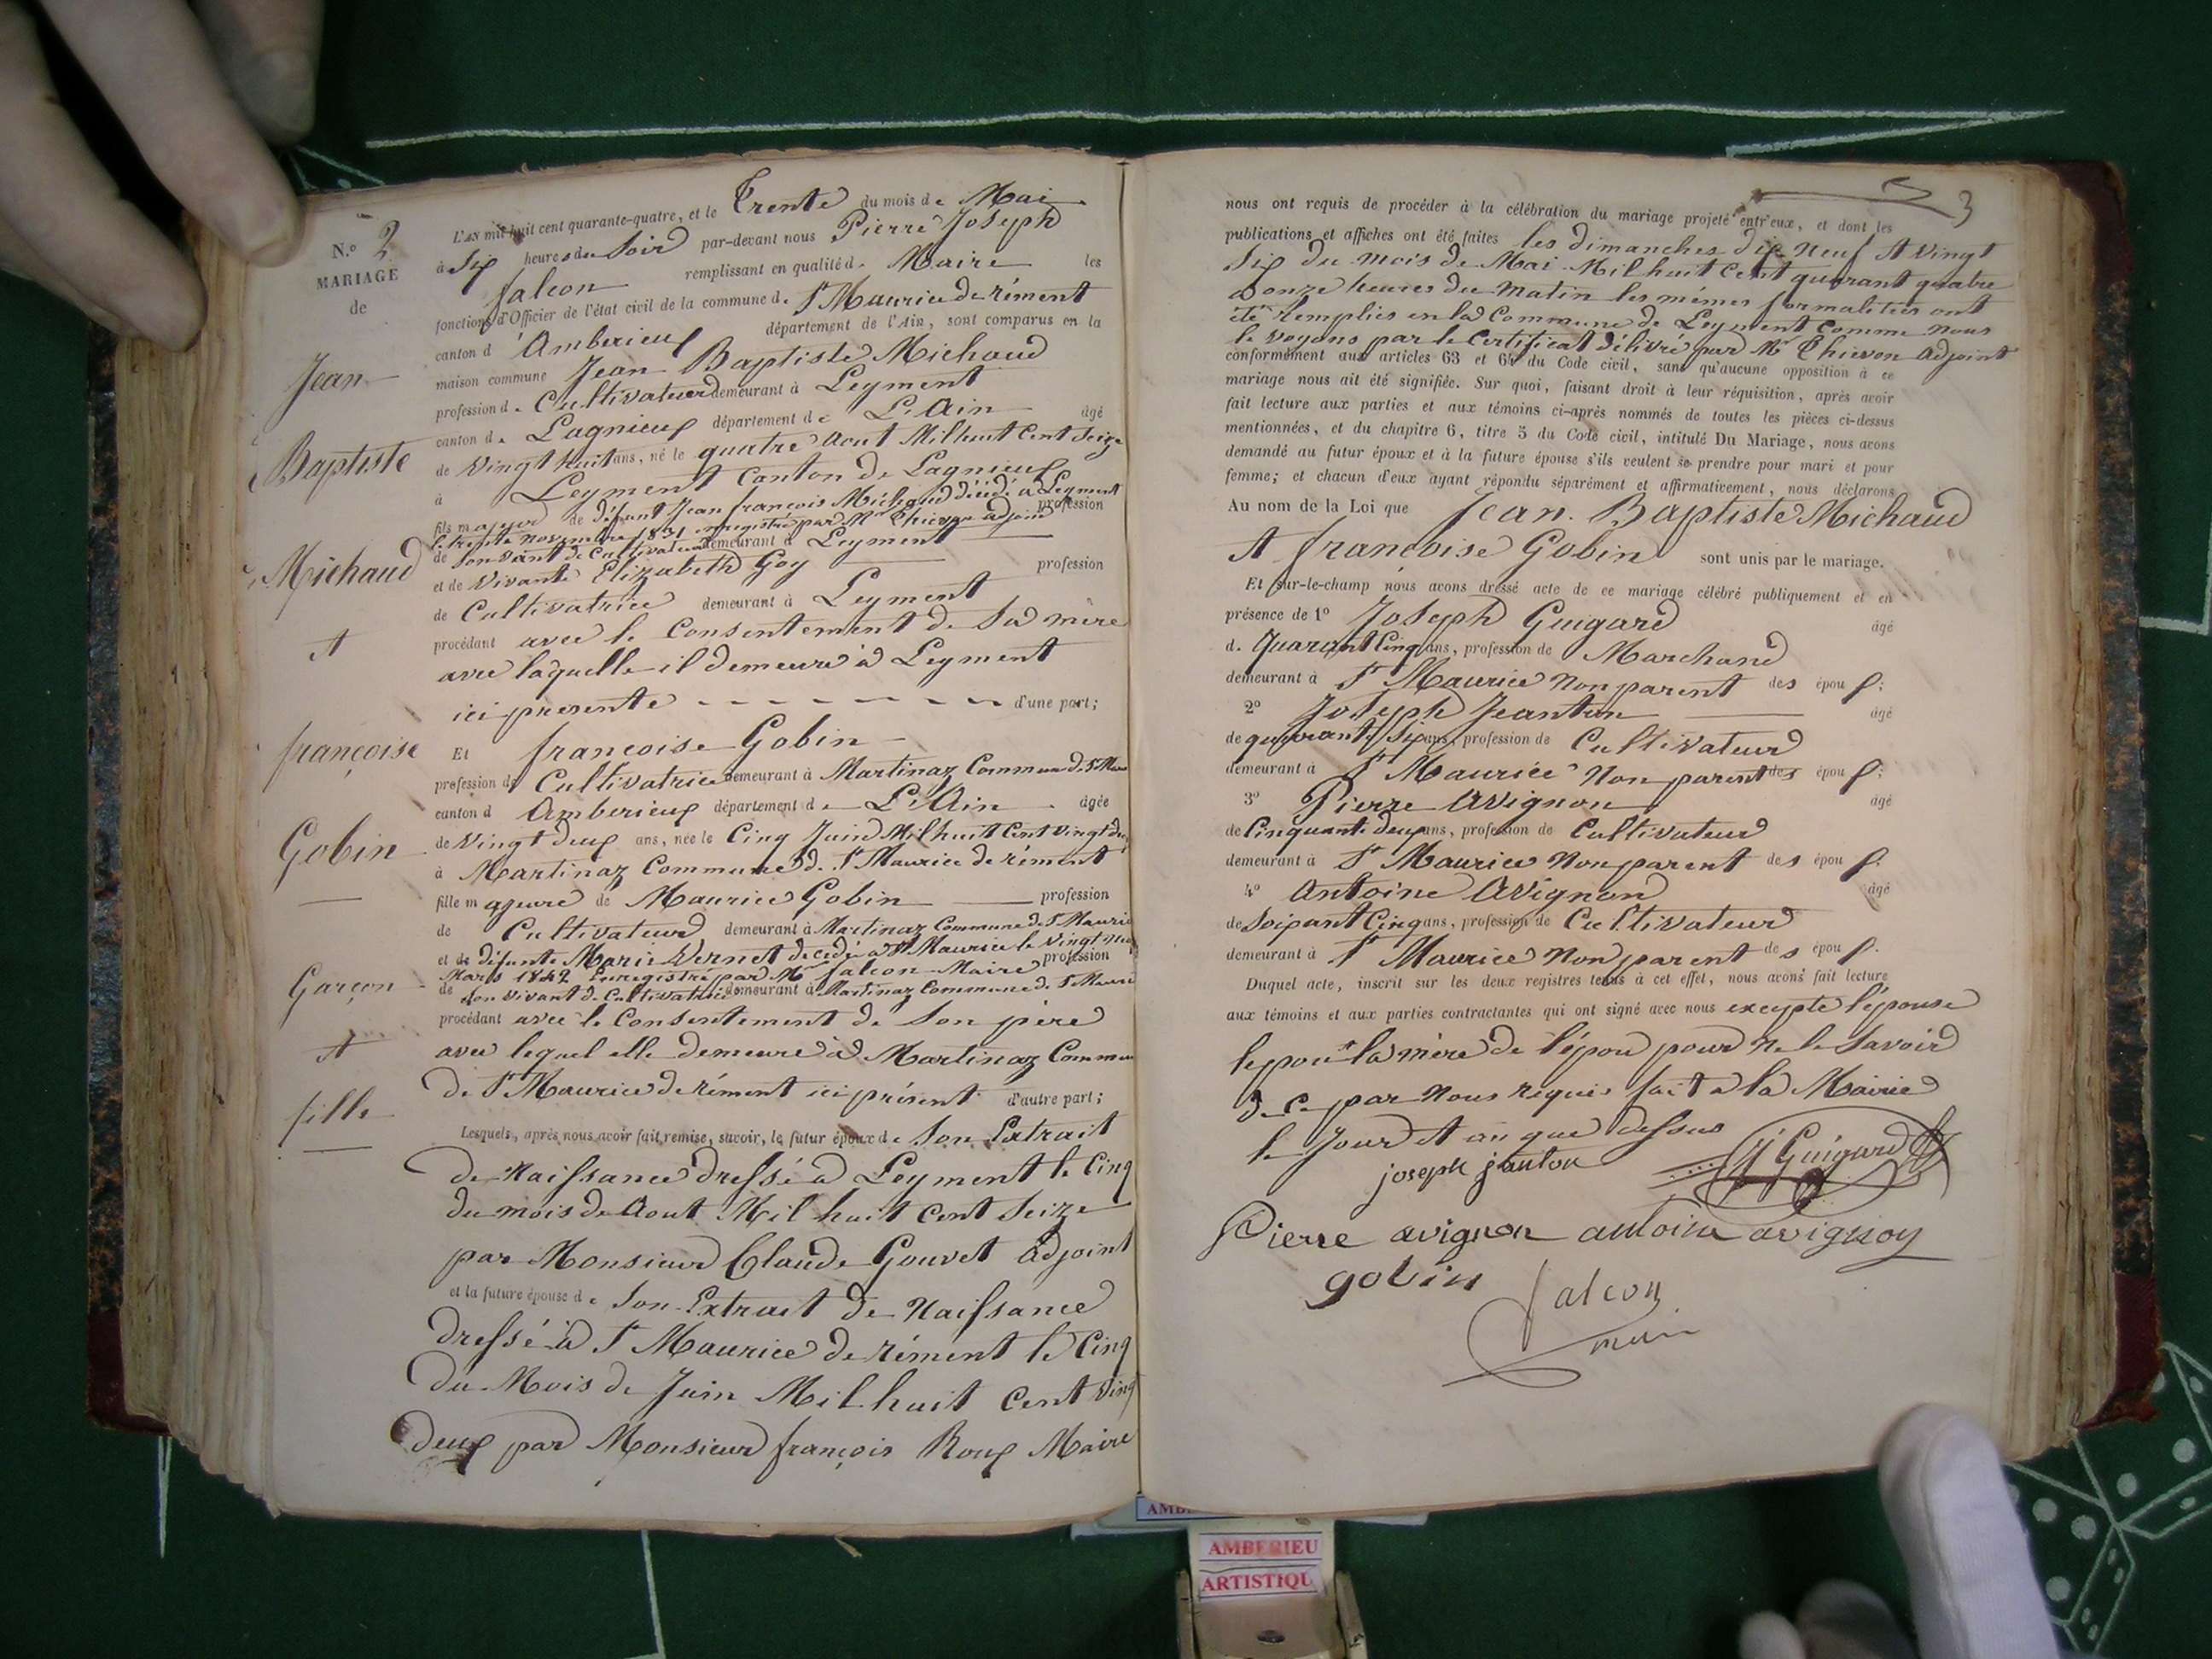 N.o 2
MARIAGE
de
Jean
Baptiste
Michaud
et
françoise
Gobin
Garçon
et
fille
L'AN mil huit cent quarante-quatre, et le Trente du mois de Mai
à Six heures du Soir par-devant nous Pierre Joseph
falcon remplissant en qualité de Maire les
fonctions d'Officier de l'état civil de la commune de St Maurice de rément
canton d'Amberieux département de l'Ain, sont comparus en la
maison commune Jean Baptiste Michaud
profession de Cultivateur demeurant à Leyment
canton de Lagnieux département de L'Ain âgé
de Vingt huit ans, né le quatre Aout Mil huit Cent Seize
à Leyment Canton de Lagnieux
fils majeur de défunt Jean françois Michaud décédé a Leyment profession
le trente novembre 1831 enregistré par Mr Thievon adjoint
de Son vivant de Cultivateur demeurant à Leyment
et de Vivante Elizabeth Goy profession
de Cultivatrice demeurant à Leyment
procédant avec le Consentement de Sa mère
avec laquelle il demeure à Leyment
ici présente d'une part;
Et francoise Gobin
profession de Cultivatrice demeurant à Martinaz Commune de St Mau
canton d Amberieux département de L'Ain âgée
de Vingt deux ans, née le Cinq Juin Mil huit Cent Vingt deux
à Martinaz Commune de St Maurice de rément
fille majeure de Maurice Gobin profession
de Cultivateur demeurant à Martinaz Commune de St Mauric
et de défunte Marie Vernet décédé a St Maurice le Vingt neuf profession
Mars 1842 Enregistré par Mr falcon Maire
de son vivant de Cultivatrice demeurant à Martinaz Commune de St Mauric
procédant avec le Consentement de Son père
avec lequel elle demeure à Martinaz Commun
de St Maurice de rément ici présent d'autre part;
Lesquels, après nous avoir fait remise, savoir, le futur époux de Son Extrait
de Naissance dressé a Leyment le Cinq
du mois de Aout Mil huit Cent Seize
par Monsieur Claude Gouvet Adjoint
et la future épouse de Son Extrait de Naissance
dressé à St Maurice de rément le Cinq
du Mois de Juin Mil huit Cent Ving
deux par Monsieur françois Roux Maire
3
nous ont requis de procéder à la célébration du mariage projeté entr'eux, et dont les
publications et affiches ont été faites les dimanches dix Neuf et Vingt
Six du mois de Mai Mil huit Cent quarant quatre
a onze heures du Matin les mêmes formalitées ont
été Remplies en la Commune de Leyment Comme nous
le voyons par le Certificat délivré par Mr Thievon Adjoint
conformément aux articles 63 et 64 du Code civil, sans qu'aucune opposition à ce
mariage nous ait été signifiée. Sur quoi, faisant droit à leur réquisition, après avoir
fait lecture aux parties et aux témoins ci-après nommés de toutes les pièces ci-dessus
mentionnées, et du chapitre 6, titre 5 du Code civil, intitulé Du Mariage, nous avons
demandé au futur époux et à la future épouse s'ils veulent se prendre pour mari et pour
femme; et chacun d'eux ayant répondu séparément et affirmativement, nous déclarons
Au nom de la Loi que Jean Baptiste Michaud
et francoise Gobin sont unis par le mariage.
Et sur-le-champ nous avons dressé acte de ce mariage célébré publiquement et en
présence de 1o Joseph Guigard âgé
de Quarant Cinq ans, profession de Marchand
demeurant à St Maurice Non parent des époux;
2o Joseph Jeanton âgé
de quarante Six ans, profession de Cultivateur
demeurant à St Maurice Non parent des époux;
3o Pierre Avignon âgé
de Cinquante deux ans, profession de Cultivateur
demeurant à St Maurice Non parent des époux
4o Antoine Avignon âgé
de Soixant Cinq ans, profession de Cultivateur
demeurant à St Maurice Non parent des époux.
Duquel acte, inscrit sur les deux registres tenus à cet effet, nous avons fait lecture
aux témoins et aux parties contractantes qui ont signé avec nous excepte l'épouse
lepou et la mère de l'épou pour ne le Savoir
de Ce par Nous requis fait a la Mairie
le Jour et an que dessus
joseph janton J Guigard
Pierre avignon antoine avignon
gobin falcon
maire
AMBERIEU
ARTISTIQU